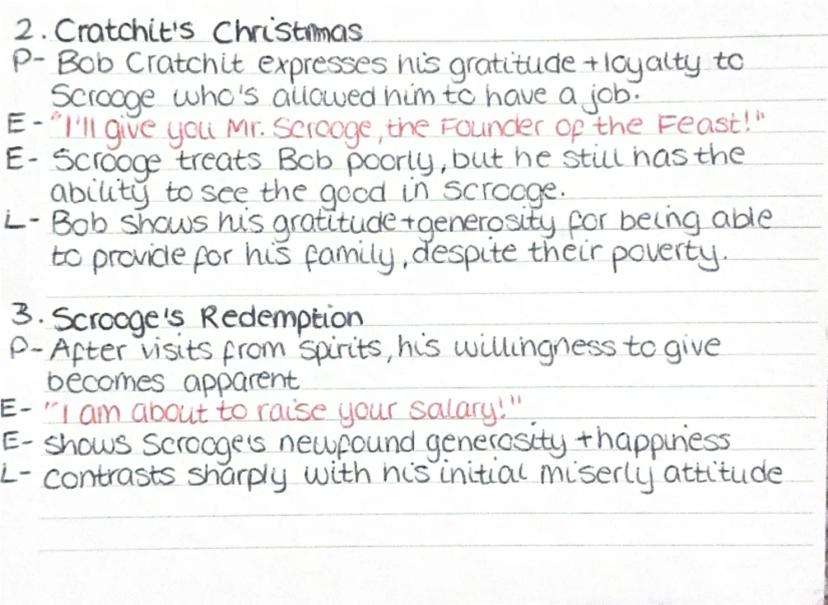 2. Cratchit's Christmas
P- Bob Cratchit expresses his gratitude + loyalty to
Scrooge who's allowed him to have a job.
E - "I'll give you Mr. Scrooge, the Founder of the Feast!"
E- Scrooge treats Bob poorly, but he still has the
ability to see the good in Scrooge.
L- Bob shows his gratitude + generosity for being able
to provide for his family, despite their poverty.
3. Scrooge's Redemption
P- After visits from spirits, his willingness to give
becomes apparent
E- "I am about to raise your salary!"
E- shows Scrooge's newfound generosity + happiness
L- contrasts sharply with his initial miserly attitude